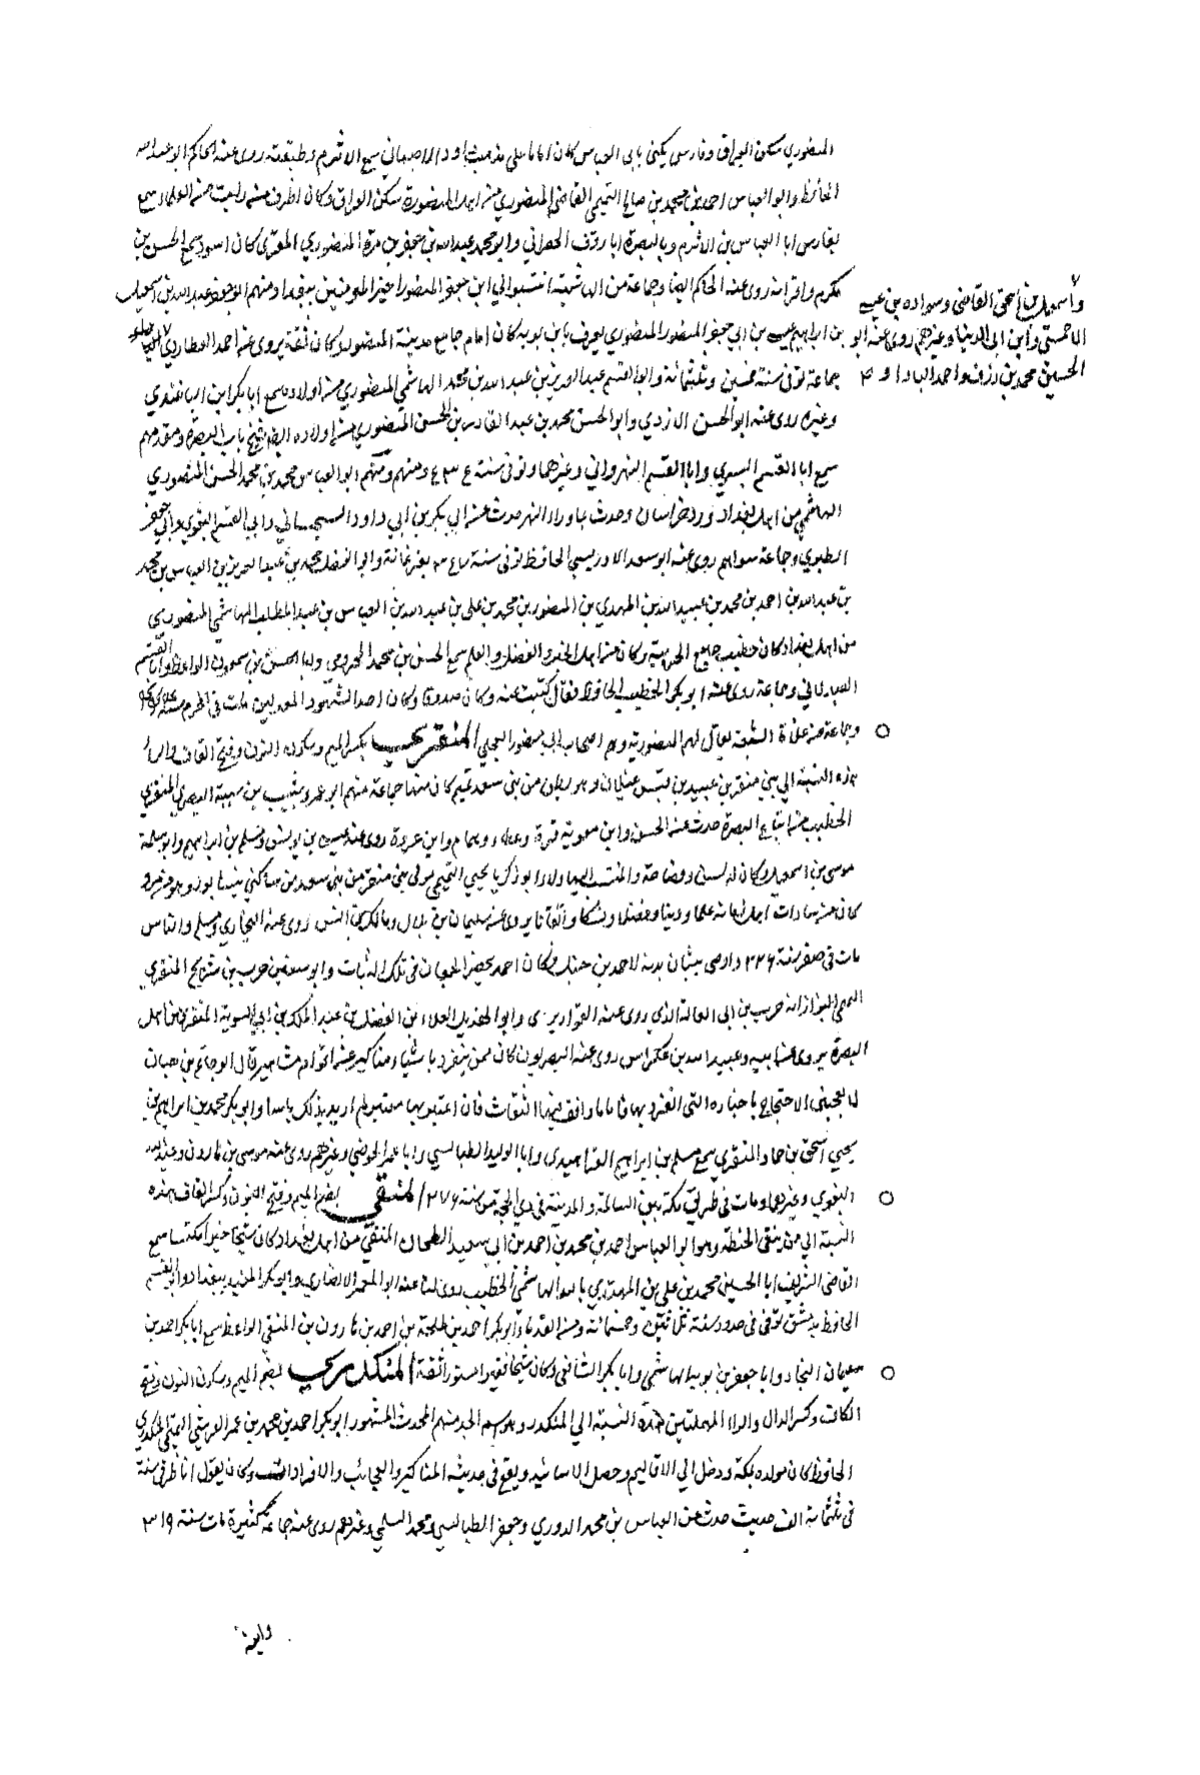 المنصوري سكن العراق وفارس يكنى بابي العباس كان اماما على مذهب داود الاصبهاني سمع الاثرم وطبقته روى عنه الحاكم ابو عبد الله
الحافظ وابو العباس احمد بن محمد بن صالح التميمي القاضي المنصوري من اهل المنصورة سكن العراق وكان اظرف من رايت من العلماء سمع
بفارس ابا العباس بن الاثرم وبالبصرة ابا روق الهزاني وابو محمد عبد الله بن جعفر بن مرة المنصوري المقرئ كان اسود سمع الحسن بن
مكرم واقرانه روى عنه الحاكم ايضا وجماعة من الهاشمية انتسبوا الي ابي جعفر المنصور امير المومنين ببغداد منهم ابو جعفر عبد الله بن اسمعيل
بن ابراهيم بن عيسى بن ابي جعفر المنصور المنصوري يعرف بابن بويه كان امام جامع مدينة المنصور وكان ثقة يروى عن احمد العطاردي
جماعة توفى سنة خمسين وثلثمائة وابو القسم عبد العزيز بن عبد الله بن محمد الهاشمي المنصوري من اولاده سمع ابا بكر ابن الباغندي
وغيره روى عنه ابو الحسن الازدي وابو الحسن محمد بن عبد القادر بن الحسن المنصوري من اولاده ايضا شيخ باب البصرة ومقدمهم
سمع ابا القسم البسري وابا القسم النهرواني وغيرهما وتوفى سنة ومنهم ابو العباس محمد بن محمد الحسن المنصوري
الهاشمي من اهل بغداد ورد خراسان وحدث بما وراء النهر حدث عن ابي بكر بن ابي داود السجستاني وابي القسم البغوي وابي جعفر
الطبري وجماعة سواهم روى عنه ابو سعد الادريسي الحافظ توفى سنة وابو الفضل محمد بن عبد العزيز بن العباس بن محمد
بن عبد الله بن احمد بن محمد بن عبيد الله بن المهدي بن المنصور بن محمد بن علي بن عبد الله بن العباس بن عبد المطلب الهاشمي المنصوري
من اهل بغداد كان خطيب جامع الحربية وكان من اهل الخير والفضل والعلم سمع الحسن بن محمد المخرمي وابا الحسين بن سمعون الواعظ وابا القسم
الصيدلاني وجماعة روى عنه ابو بكر الخطيب الحافظ فقال كتبت عنه وكان صدوقا وكان احد الشهود المعدلين مات في المحرم سنة
وجماعة من غلاة الشيعة يقال لهم المنصورية وهم اصحاب ابي منصور العجلي المنقري بكسر الميم وسكون النون وفتح القاف والراء
هذه النسبة الي بني منقر بن عبيد بن وهو بطن من بني سعد تميم كان منها جماعة منهم ابو عمرو شبيب بن شيبة البصري المنقري
الخطيب من البصرة حدث عن الحسن وابن معوية قرة وعطاء وهمام وابن عروة روى عنه عيسى بن يونس ومسلم بن ابراهيم وابو سلمة
موسى بن اسمعيل وكان له لسن وفصاحة والمنتسب اليها ولاء ابو زكريا يحيى التميمي مولى بني منقر من بني سعد من ساكني نيسابور وهو
كان من سادات اهل زمانه علما ودينا وفضلا ونسكا واتقانا يروى عن سليمان بن بلال ومالك بن انس روى عنه البخاري ومسلم والناس
مات في صفر سنة ٢٢٦ واوصى بثياب بدنه لاحمد بن حنبل فكان احمد يحضر الجمعات في تلك الثياب وابو سفين حرب بن سريج المنقري
التميمي البزاز انه حرب بن ابي العالية الذي روى عنه القواريري وابو الهذيل العلاء بن الفضل بن عبد الملك بن ابي السوية المنقري من اهل
البصرة يروى عن ابيه وعبيد الله بن عكراش روى عنه البصريون كان ممن ينفرد باشياء مناكير عن اقوام مشاهير قال ابو حاتم بن حبان
لا يعجبني الاحتجاج باخباره التى انفرد بها فاما ما وافق فيها الثقات فان اعتبر بها معتبر لم ار بذلك باسا وابو بكر محمد بن ابراهيم بن
يحيى اسحق بن حماد المنقري سمع مسلم بن ابراهيم الفراهيدي وابا الوليد الطيالسي وابا عمر الحوضي وغيرهم روى عنه موسى بن هارون وعبد الله
البغوي وغيرهما ومات في طريق مكة بين السالمة والمدينة في ذي الحجة من سنة ٢٧٦ المنقي بضم الميم وفتح النون وكسر القاف هذه
النسبة الي من ينقى الحنطة وهو ابو العباس احمد بن محمد بن احمد بن ابي سعيد الطحان المنقي من اهل بغداد كان شيخا خيرا مكتسبا سمع
القاضي الشريف ابا الحسين محمد بن علي بن المهتدي بالله الهاشمي الخطيب روى لنا عنه ابو المعمر الانصاري وابو بكر المفيد ببغداد وابو القسم
الحافظ بدمشق توفى في حدود سنة ثلاثين وخمسمائة ومن القدماء ابو بكر احمد بن طلحة بن احمد بن هارون بن المنقي الواعظ سمع ابا بكر احمد بن
سليمان النجاد وابا جعفر بن بويه الهاشمي وابا بكر الشافعي وكان شيخا فقيرا مستورا ثقة المنكدري بضم الميم وسكون النون وفتح
الكاف وكسر الدال والراء المهملتين هذه النسبة الي المنكدر وهو اسم لجد منهم المحدث المشهور ابو بكر احمد بن محمد بن عمر القرشي التيمي المنكدري
الحافظ كان مولده بمكة ودخل الي الاقاليم وحصل الاسانيد ويقع في حديثه المناكير والعجائب والافرادات وكان يقول اناظر في سنة
في ثلثمائة الف حديث حدث عن العباس بن محمد الدوري وجعفر الطيالسي ومحمد السلمي وغيرهم روى عنه جماعة كثيرة مات سنة ٣١٩
واسمعيل بن اسحق القاضي وسوادة بن علي
الاحمسي وابن ابي الدنيا وغيرهم روى عنه ابو
الحسين محمد بن رزق واحمد البادا و
وابنه